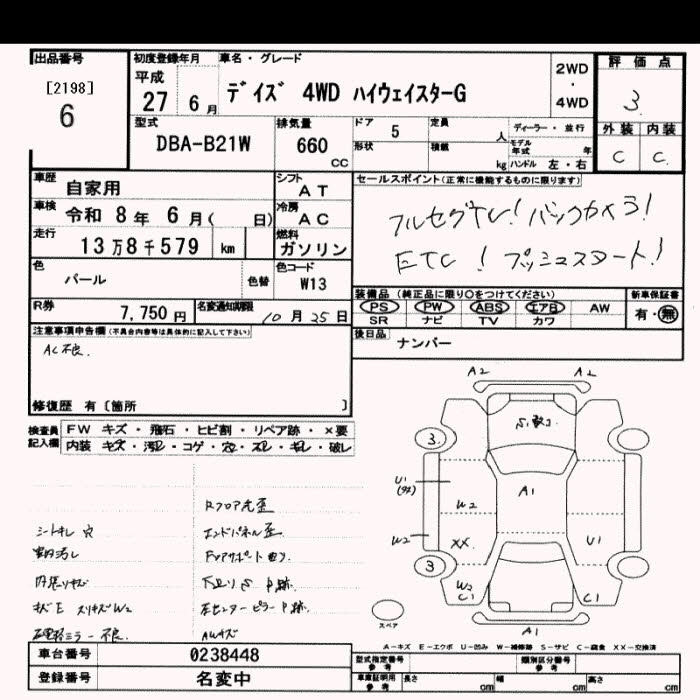 出品番号
[2198]
6
初度登録年月
平成
27 6月
車名・グレード
デイズ 4WD ハイウェイスターG
2WD
・
4WD
評価点
3
外装 内装
C C
型式
DBA-B21W
排気量
660
CC
ドア 5
定員
人
ディーラー・並行
形状
積載
kg
モデル年式
年
ハンドル 左・右
車歴
自家用
シフト
AT
車検
令和 8年 6月( 日)
冷房
AC
走行
13万8千579 km
燃料
ガソリン
色
パール
色替
色コード
W13
R券
7,750円
名変通知期限
10月25日
セールスポイント(正常に機能するものに限ります)
フルセグTV! バックカメラ!
ETC! プッシュスタート!
装備品 (純正品に限り○をつけてください)
PS PW ABS エアB AW
SR ナビ TV カワ
新車保証書
有・無
後日品
ナンバー
注意事項申告欄(不具合内容等は具体的に記入して下さい)
AC不良.
修復歴 有〔箇所 〕
検査員
記入欄
FW キズ・飛石・ヒビ割・リペア跡・×要
内装 キズ・汚レ・コゲ・穴・スレ・キレ・破レ
Rフロア先歪
シートキレ 穴
エンドパネル歪
室内汚レ
内張りキズ
下廻りS P跡.
左センターピラーP跡.
左電格ミラー不良.
AWキズ
A2 A2
3.
U1
W2
A1
W2
XX
U1
3
W3
C1
C1
A1
スペア
A-キズ E-エクボ U-凹み W-補修跡 S-サビ C-腐食 XX-交換済
車台番号
0238448
登録番号
名変中
型式指定番号
参考
類別区分番号
参考
車庫証明用
参考
長さ
cm
幅
cm
高さ
cm